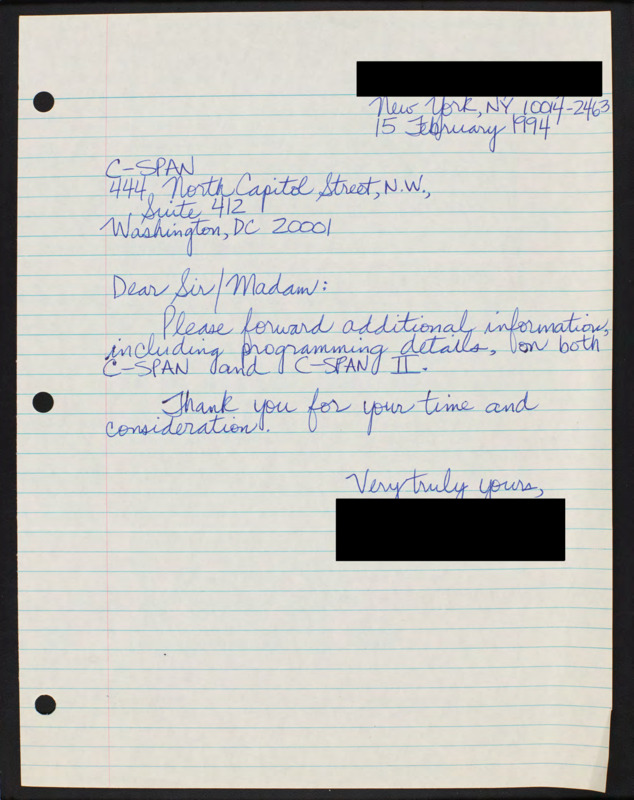 New York, NY 10014-2463
15 February 1994
C-SPAN
444 North Capitol Street, N.W.,
Suite 412
Washington, DC 20001
Dear Sir/Madam:
Please forward additional information,
including programming details, on both
C-SPAN and C-SPAN II.
Thank you for your time and
consideration.
Very truly yours,